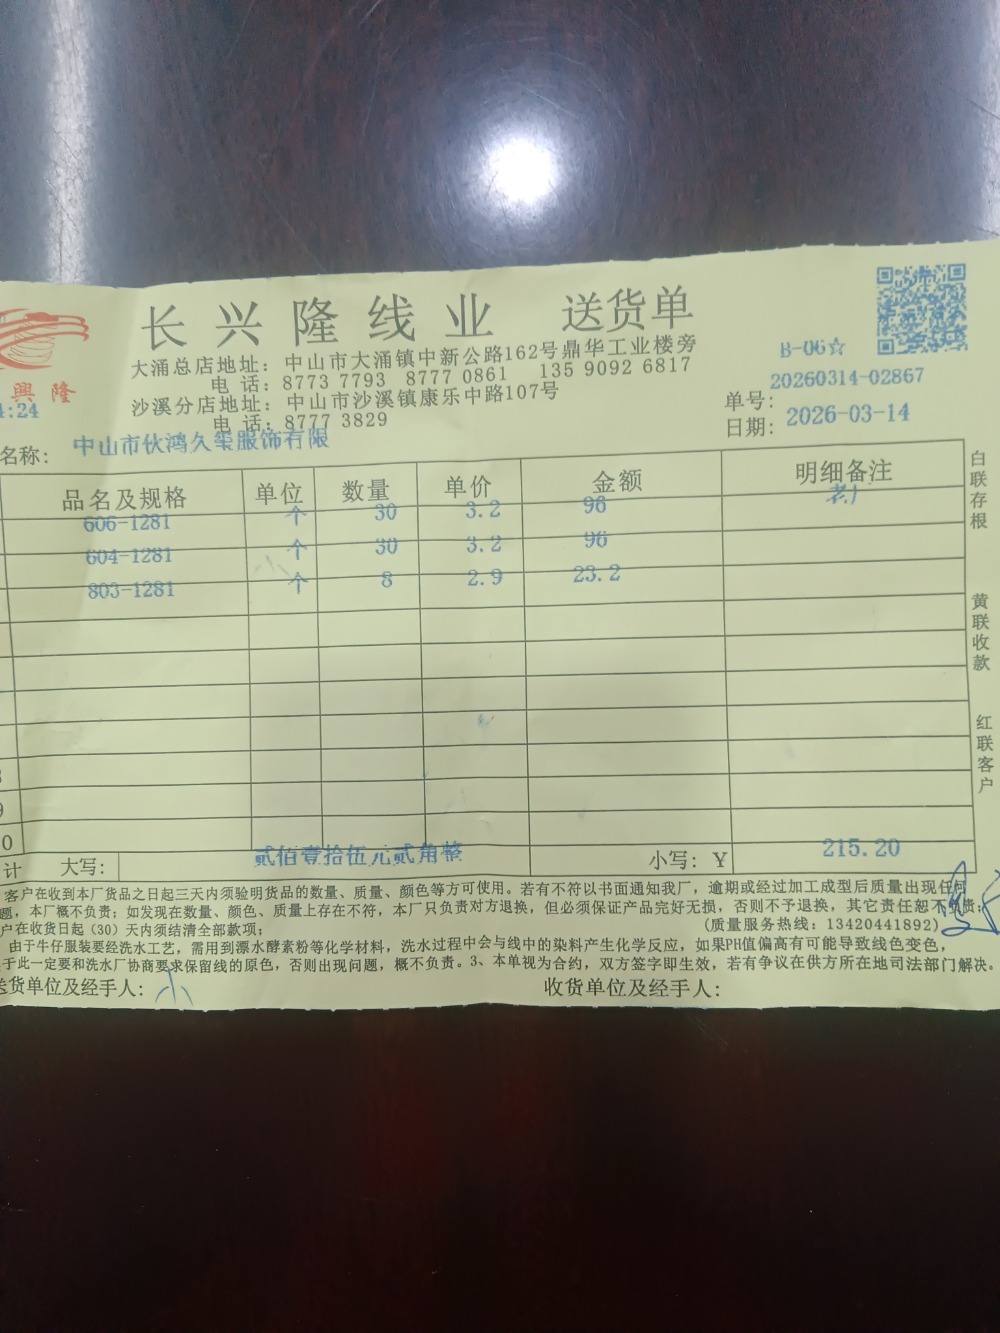 长兴隆线业 送货单
大涌总店地址：中山市大涌镇中新公路162号鼎华工业楼旁
电 话：8773 7793 8777 0861 135 9092 6817
沙溪分店地址：中山市沙溪镇康乐中路107号
电 话：8777 3829
興隆
:24
B-06☆
单号：20260314-02867
日期：2026-03-14
名称：中山市伙鸿久玺服饰有限
品名及规格 单位 数量 单价 金额 明细备注
606-1281 个 30 3.2 96
604-1281 个 30 3.2 96
803-1281 个 8 2.9 23.2
9
0
计 大写：贰佰壹拾伍元贰角整 小写：￥ 215.20
白联存根
黄联收款
红联客户
客户在收到本厂货品之日起三天内须验明货品的数量、质量、颜色等方可使用。若有不符以书面通知我厂，逾期或经过加工成型后质量出现任何
题，本厂概不负责；如发现在数量、颜色、质量上存在不符，本厂只负责对方退换，但必须保证产品完好无损，否则不予退换，其它责任恕不负责；
户在收货日起（30）天内须结清全部款项； (质量服务热线：13420441892)
由于牛仔服装要经洗水工艺，需用到漂水酵素粉等化学材料，洗水过程中会与线中的染料产生化学反应，如果PH值偏高有可能导致线色变色，
于此一定要和洗水厂协商要求保留线的原色，否则出现问题，概不负责。3、本单视为合约，双方签字即生效，若有争议在供方所在地司法部门解决。
送货单位及经手人：小 收货单位及经手人：